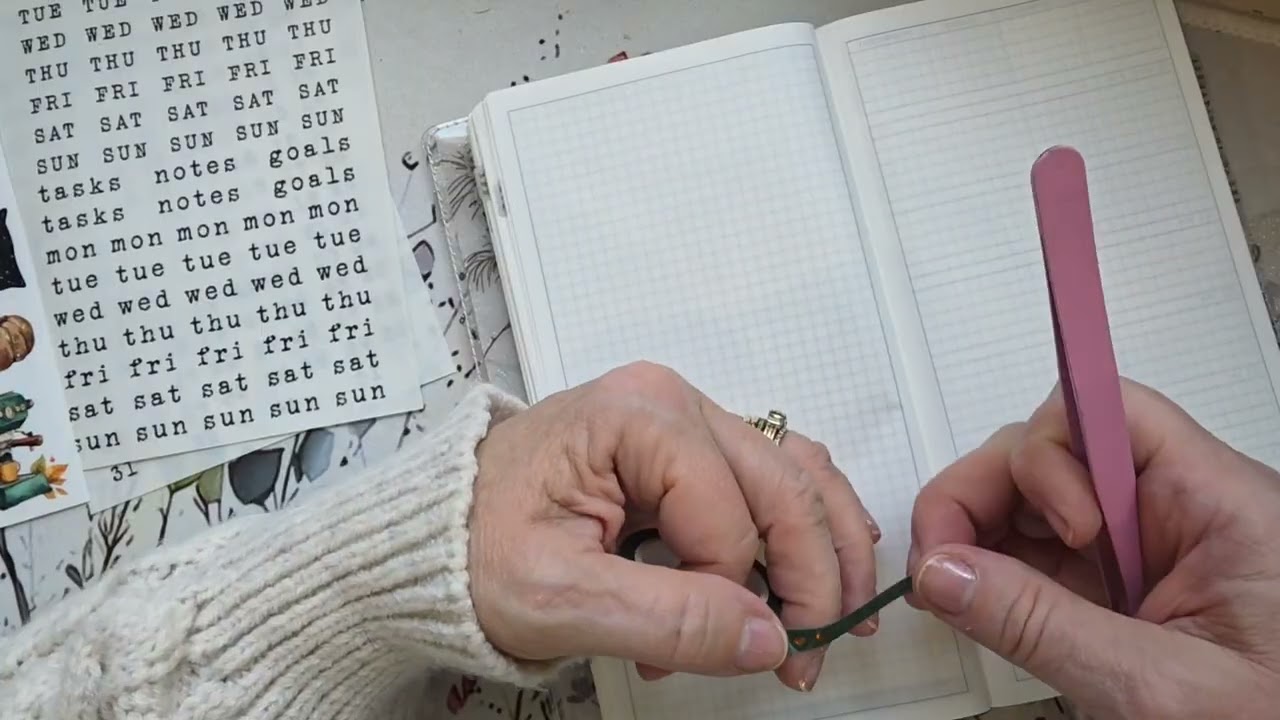 TUE TUE
WED WED WED WED WED
THU THU THU THU THU
FRI FRI FRI FRI FRI
SAT SAT SAT SAT SAT
SUN SUN SUN SUN SUN
tasks notes goals
tasks notes goals
mon mon mon mon mon
tue tue tue tue tue
wed wed wed wed wed
thu thu thu thu thu
fri fri fri fri fri
sat sat sat sat sat
sun sun sun sun sun
31